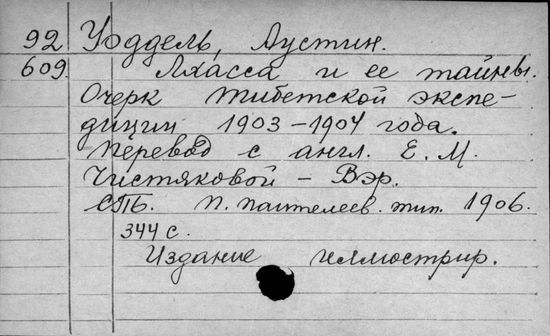 92 Уоддель, Аустин.
609. Лхасса и ее тайны.
Очерк тибетской экспе-
диции 1903-1904 года.
Перевод с англ. Е. М.
Чистяковой - Вэр.
СПБ. П. Пантелеев. тип. 1906.
344 с.
Издание иллюстрир.